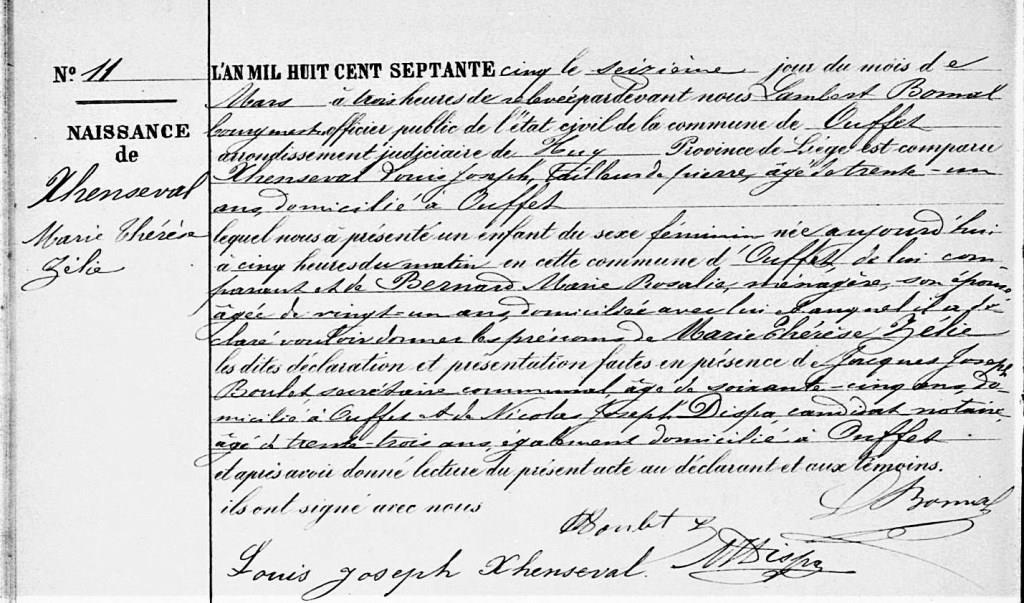 N° 11
NAISSANCE
de
Xhenseval
Marie Thérèse
Zélie
L'AN MIL HUIT CENT SEPTANTE cinq le seizième jour du mois de
Mars à trois heures de relevée pardevant nous Lambert Bomal
bourgmestre officier public de l'état civil de la commune de Ouffet
arrondissement judiciaire de Huy Province de Liège est comparu
Xhenseval Louis Joseph, tailleur de pierre, âgé de trente-un
ans, domicilié à Ouffet
lequel nous à présenté un enfant du sexe féminin née aujourd'hui
à cinq heures du matin en cette commune d'Ouffet, de lui com-
parant et de Bernard Marie Rosalie, ménagère, son épouse
âgée de vingt-un ans, domiciliée avec lui et auquel il a dé-
claré vouloir donner les prénoms de Marie Thérèse Zélie
les dites déclaration et présentation faites en présence de Jacques Joseph
Boulet secrétaire communal, âgé de soixante-cinq ans, do-
micilié à Ouffet et de Nicolas Joseph Dispa, candidat notaire,
âgé de trente-trois ans, également domicilié à Ouffet
et après avoir donné lecture du présent acte au déclarant et aux témoins.
ils ont signé avec nous
L Bomal
Boulet
Dispa
Louis Joseph Xhenseval.